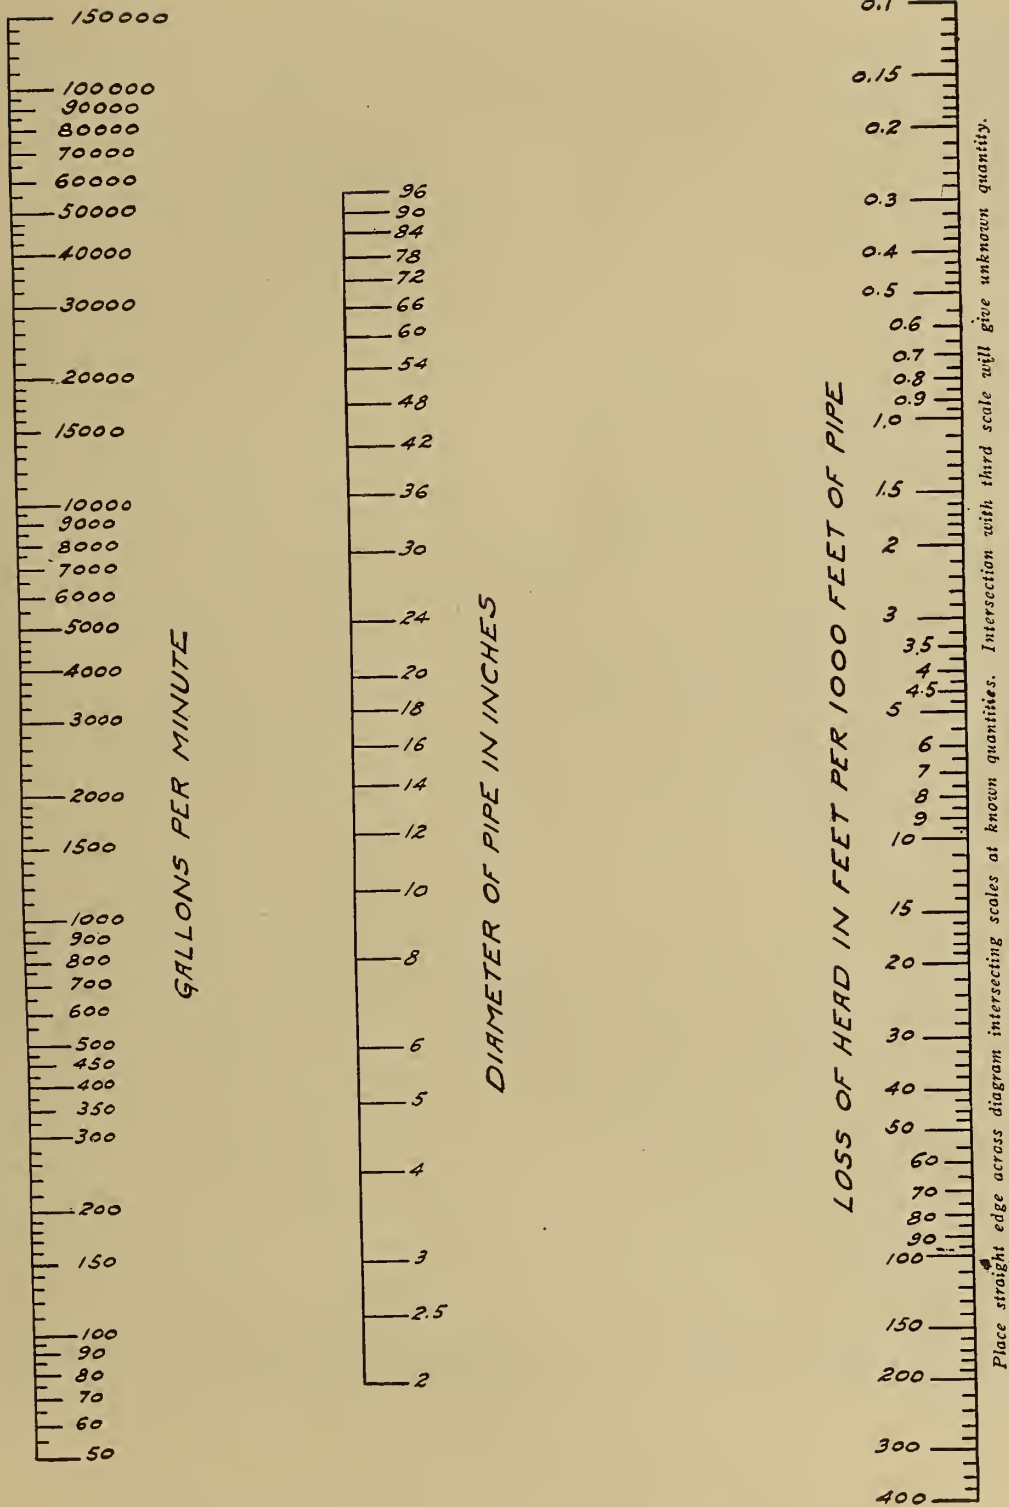 150000
100000
90000
80000
70000
60000
50000
40000
30000
20000
15000
10000
9000
8000
7000
6000
5000
4000
3000
2000
1500
1000
900
800
700
600
500
450
400
350
300
200
150
100
90
80
70
60
50
GALLONS PER MINUTE
96
90
84
78
72
66
60
54
48
42
36
30
24
20
18
16
14
12
10
8
6
5
4
3
2.5
2
DIAMETER OF PIPE IN INCHES
LOSS OF HEAD IN FEET PER 1000 FEET OF PIPE
0.1
0.15
0.2
0.3
0.4
0.5
0.6
0.7
0.8
0.9
1.0
1.5
2
3
3.5
4
4.5
5
6
7
8
9
10
15
20
30
40
50
60
70
80
90
100
150
200
300
400
Place straight edge across diagram intersecting scales at known quantities. Intersection with third scale will give unknown quantity.